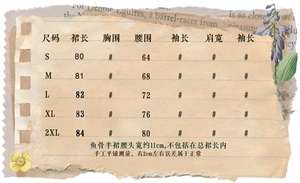 For Tennie Squires, a barrel-racer from
尺码 裙长 胸围 腰围 袖长 肩宽 袖长
S 80 # 64 # # #
M 81 # 68 # # #
L 82 # 72 # # #
XL 83 # 76 # # #
2XL 84 # 80 # # #
鱼骨半裙腰头宽约11cm,不包括在总裙长内
手工平铺测量，有2cm左右误差属于正常